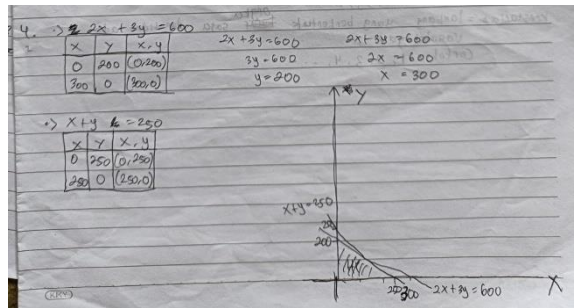 4. •) 2x + 3y = 600
x y x,y
0 200 (0,200)
300 0 (300,0)
2x + 3y = 600
3y = 600
y = 200
2x + 3y = 600
2x = 600
x = 300
•) x+y = 250
x y x,y
0 250 (0,250)
250 0 (250,0)
y
x+y=250
250
200
250 300
2x + 3y = 600
X
KKY